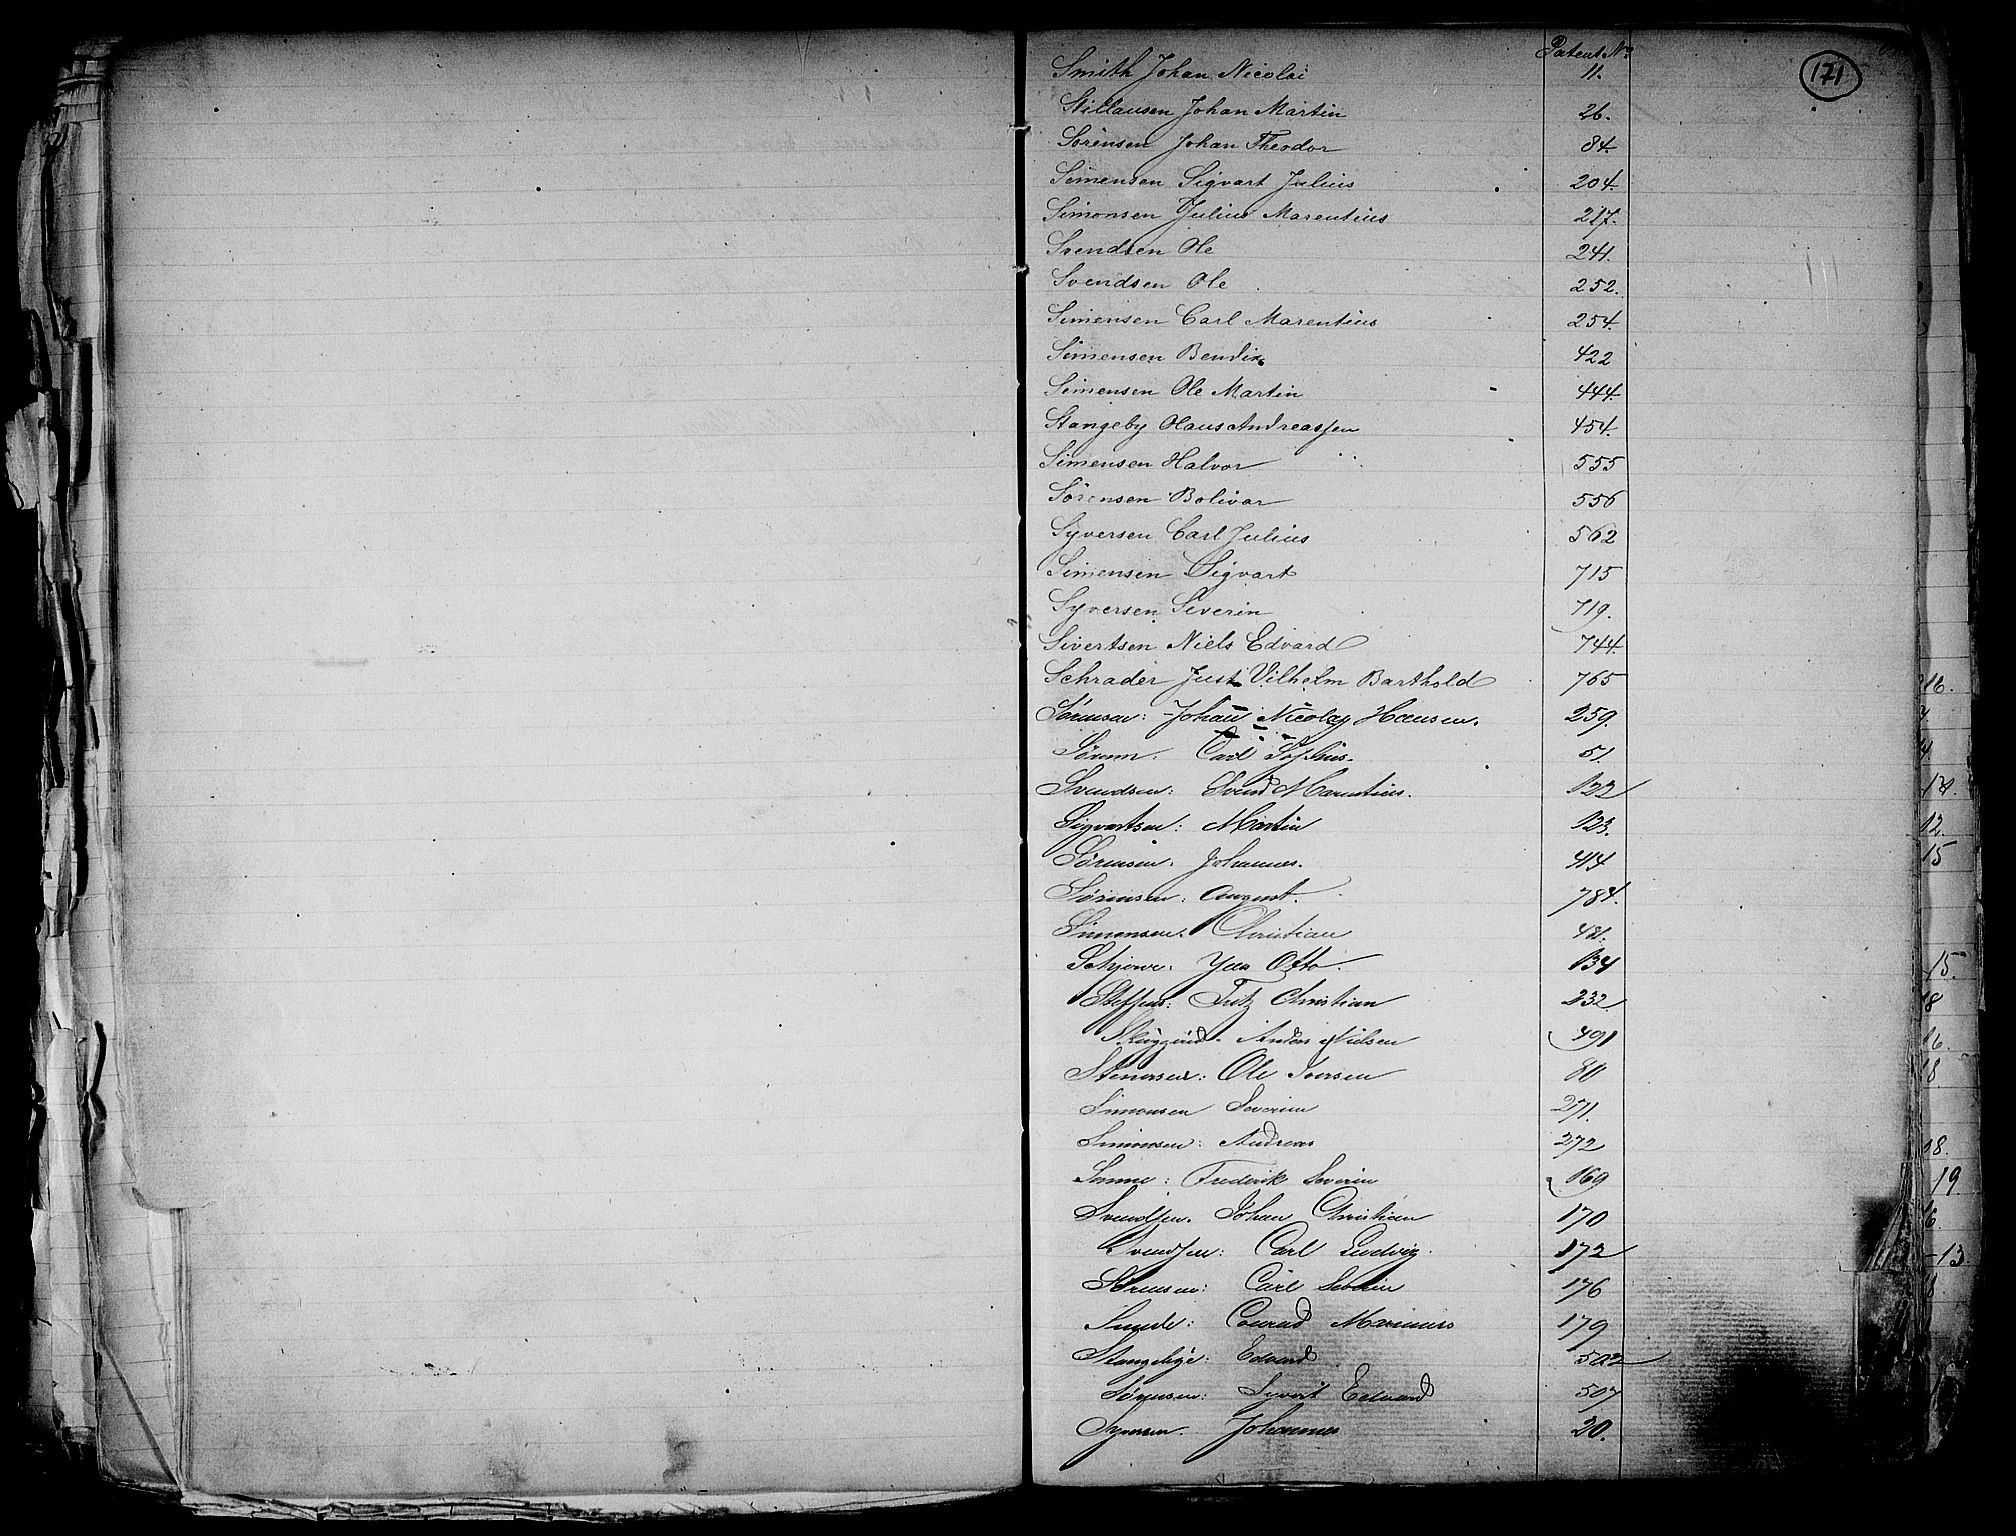 Patent No
171
Smith Johan Nicolai 11.
Stillausen Johan Martin 26.
Sörensen Johan Theodor 84.
Simensen Sigvart Julius 204.
Simonsen Julius Marentius 217.
Svendsen Ole 241.
Svendsen Ole 252.
Simensen Carl Marentius 254.
Simensen Bendix 422
Simensen Ole Martin 444.
Stangeby Olaus Andreassen 454.
Simensen Halvor 555
Sörensen Bolivar 556
Syversen Carl Julius 562
Simensen Sigvart 715
Syversen Severin 719.
Sivertsen Niels Edvard 744.
Schrader Just Vilhelm Barthold 765
Sørensen: Johan Nicolay Hansen. 259.
Carl Sofhus. 51.
Svendsen: Svend Marentius. 122
Sigvartsen: Martin 123.
Sørensen. Johannes. 414
Sørensen: August. 784.
Simonsen. Christian 481.
Otto. 134
Steffens: Fritz Christian 232
Anders Nielsen 491
Stenersen: Ole Iversen 80
Simonsen Severin 271.
Simonsen: Andreas 272
Frederik Severin 169
Svendsen. Johan Christian 170
Svendsen: Carl Ludvig. 172
Sørensen: Carl Severin 176
Sunde: Conrad Marinius 179
Stangebye: Edvard 502
Sørensen: Syvert Edvard 507
Syversen. Johannes 20.
16.
12.
15
15.
18
16.
18.
19
-13.